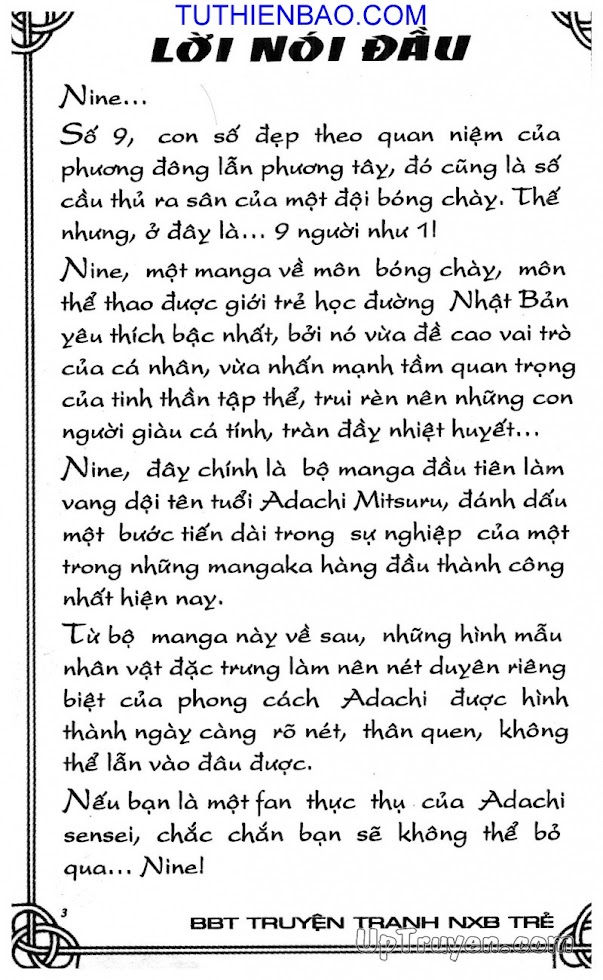 TUTHIENBAO.COM
LỜI NÓI ĐẦU
Nine...
Số 9, con số đẹp theo quan niệm của
phương đông lẫn phương tây, đó cũng là số
cầu thủ ra sân của một đội bóng chày. Thế
nhưng, ở đây là... 9 người như 1!
Nine, một manga về môn bóng chày, môn
thể thao được giới trẻ học đường Nhật Bản
yêu thích bậc nhất, bởi nó vừa đề cao vai trò
của cá nhân, vừa nhấn mạnh tầm quan trọng
của tinh thần tập thể, trui rèn nên những con
người giàu cá tính, tràn đầy nhiệt huyết...
Nine, đây chính là bộ manga đầu tiên làm
vang dội tên tuổi Adachi Mitsuru, đánh dấu
một bước tiến dài trong sự nghiệp của một
trong những mangaka hàng đầu thành công
nhất hiện nay.
Từ bộ manga này về sau, những hình mẫu
nhân vật đặc trưng làm nên nét duyên riêng
biệt của phong cách Adachi được hình
thành ngày càng rõ nét, thân quen, không
thể lẫn vào đâu được.
Nếu bạn là một fan thực thụ của Adachi
sensei, chắc chắn bạn sẽ không thể bỏ
qua... Nine!
3
BBT TRUYỆN TRANH NXB TRẺ
UpTruyen.com